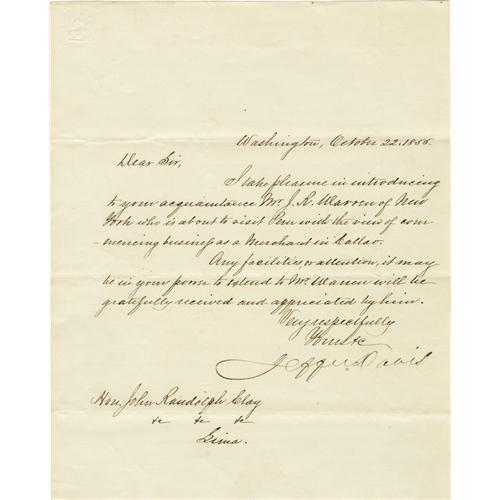 Washington, October 22. 1855.
Dear Sir,
I take pleasure in introducing
to your acquaintance Mr. J. R. Warren of New
York who is about to visit Peru with the view of com-
-mencing business as a Merchant in Callao.
Any facilities or attention, it may
be in your power to extend to Mr. Warren will be
gratefully received and appreciated by him.
Very respectfully
Yours &c
Jeffn. Davis
Hon. John Randolph Clay
&c &c &c
Lima.